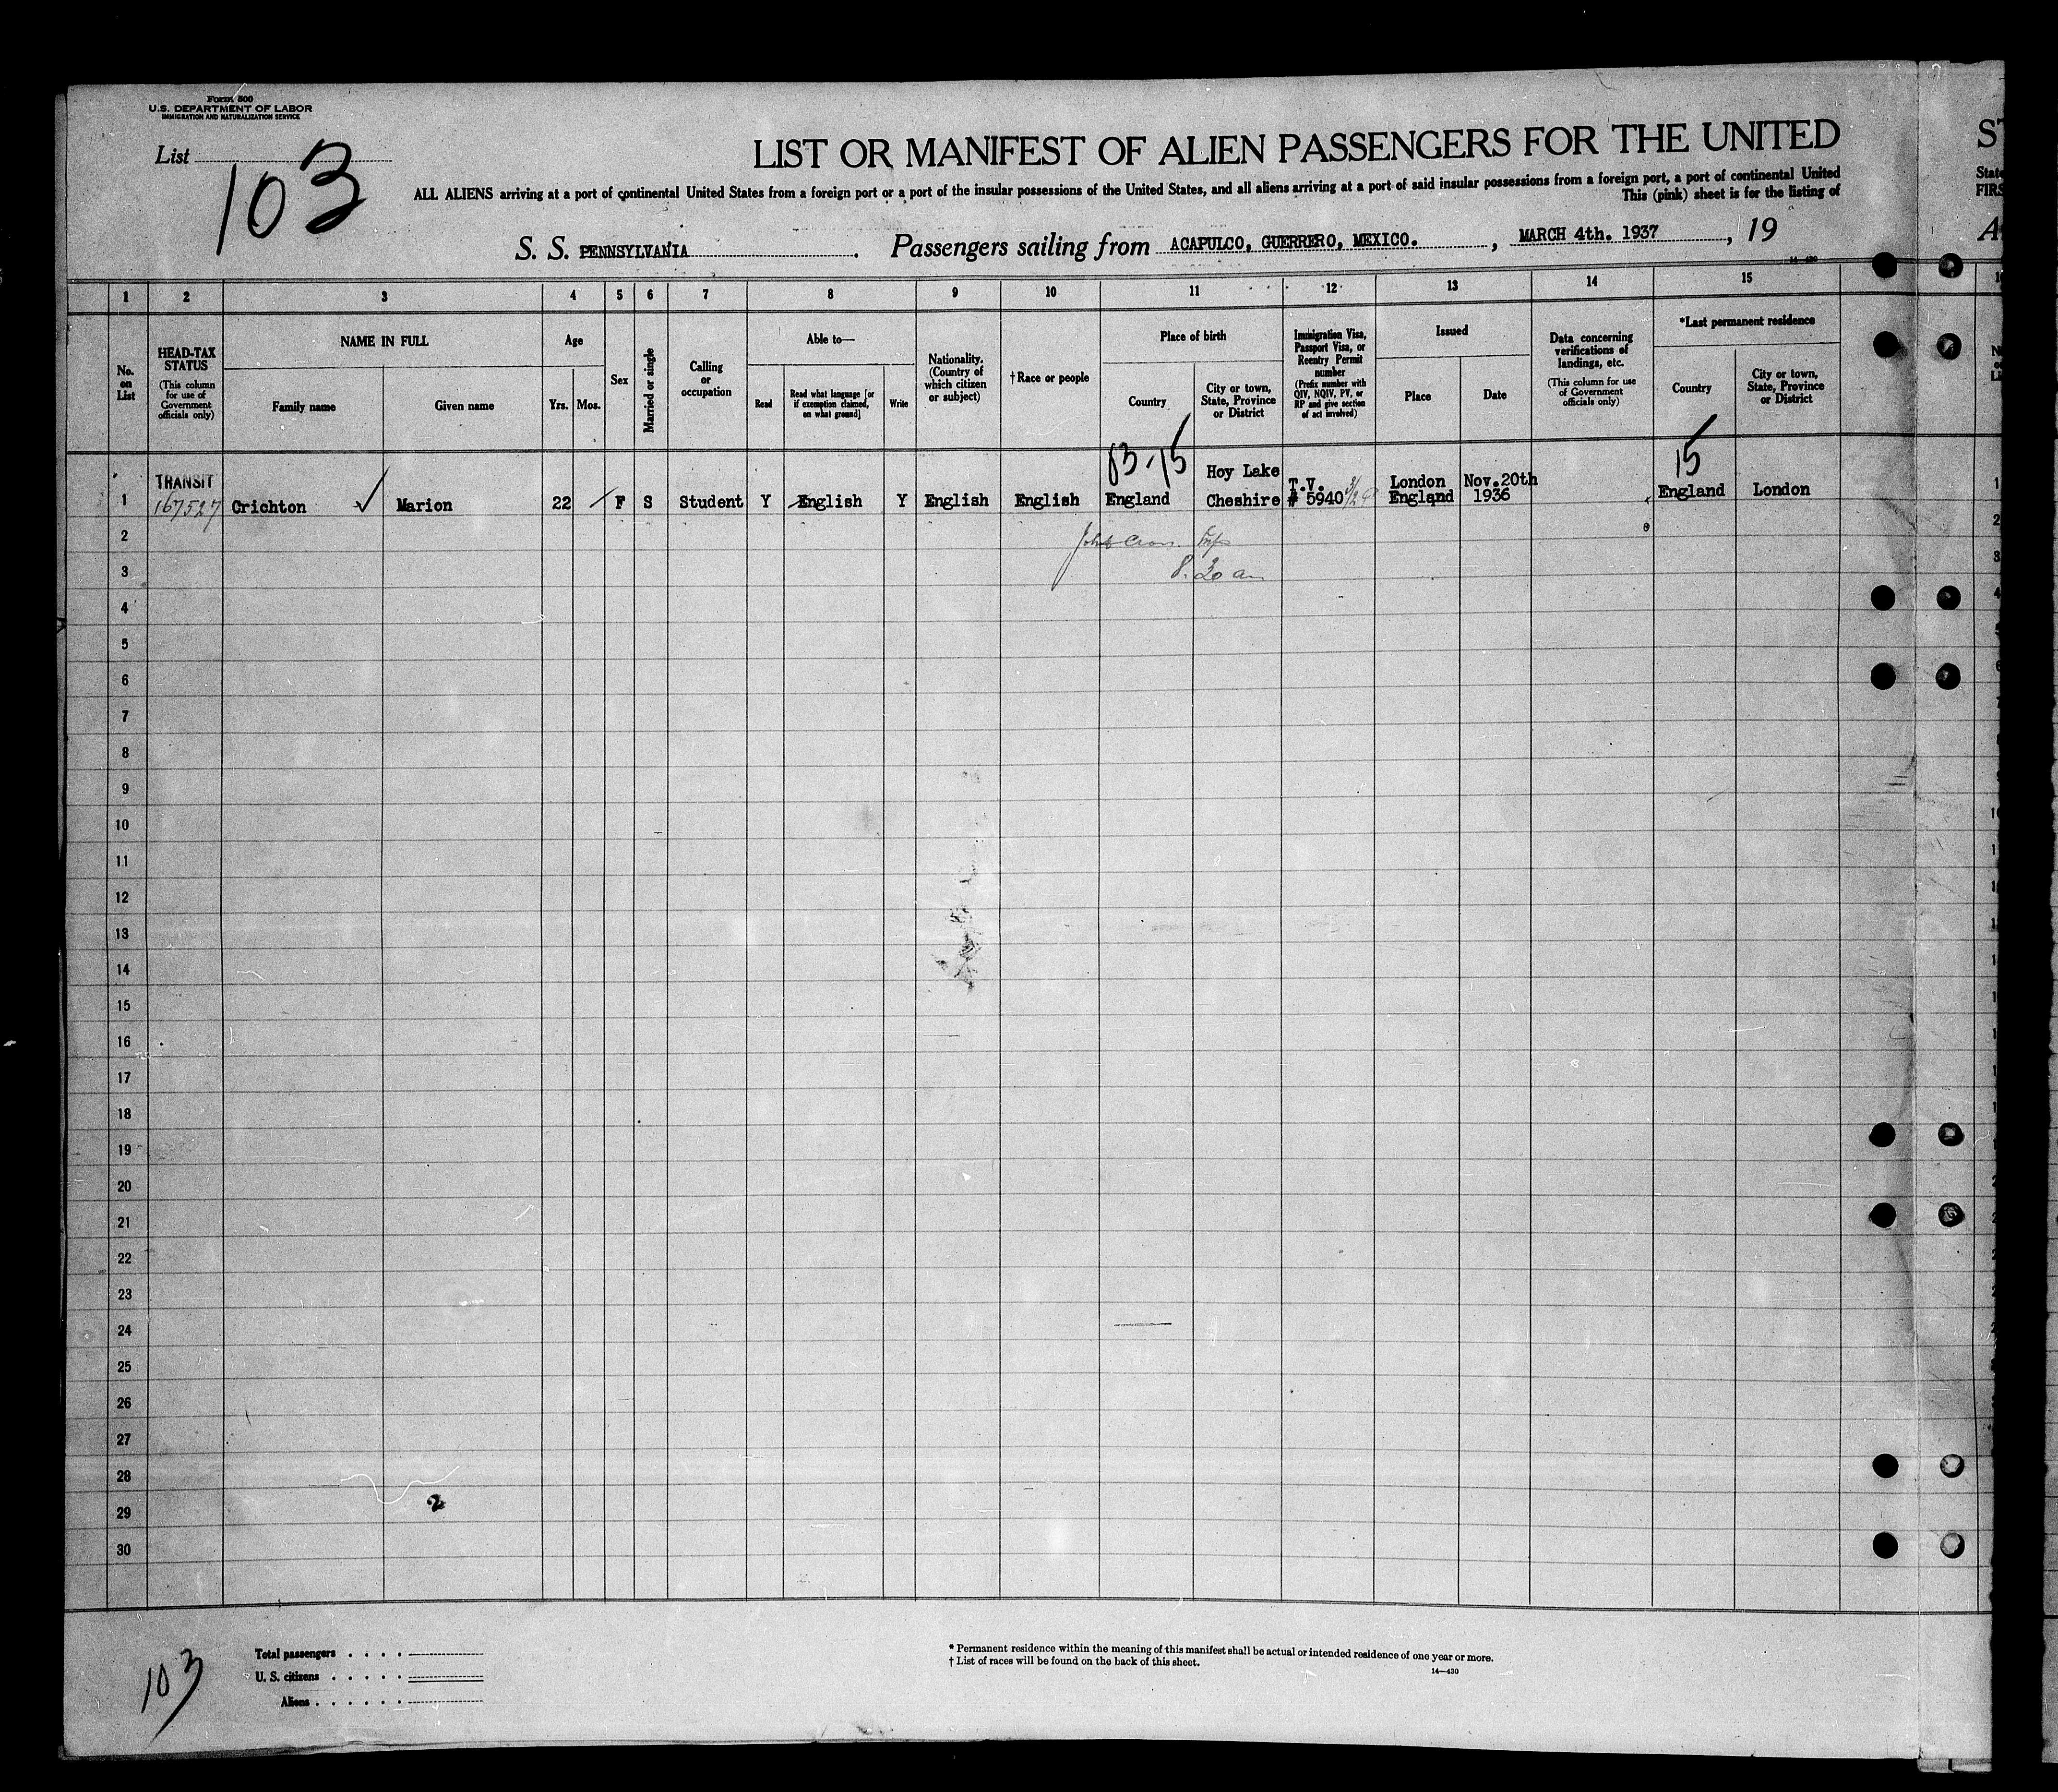 Form 500
U.S. DEPARTMENT OF LABOR
IMMIGRATION AND NATURALIZATION SERVICE
List
103
LIST OR MANIFEST OF ALIEN PASSENGERS FOR THE UNITED
ST
ALL ALIENS arriving at a port of continental United States from a foreign port or a port of the insular possessions of the United States, and all aliens arriving at a port of said insular possessions from a foreign port, a port of continental United
State
This (pink) sheet is for the listing of
FIRS
S. S. PENNSYLVANIA. Passengers sailing from ACAPULCO, GUERRERO, MEXICO. , MARCH 4th. 1937 , 19
A
14—430
1 2 3 4 5 6 7 8 9 10 11 12 13 14 15
No. on List
HEAD-TAX STATUS
(This column for use of Government officials only)
NAME IN FULL
Family name
Given name
Age
Yrs. Mos.
Sex
Married or single
Calling or occupation
Able to—
Read
Read what language [or if exemption claimed, on what ground]
Write
Nationality. (Country of which citizen or subject)
†Race or people
Place of birth
Country
City or town, State, Province or District
Immigration Visa, Passport Visa, or Reentry Permit number
(Prefix number with QIV, NQIV, PV, or RP and give section of act involved)
Issued
Place
Date
Data concerning verifications of landings, etc.
(This column for use of Government officials only)
*Last permanent residence
Country
City or town, State, Province or District
15
TRANSIT Hoy Lake T.V. London Nov.20th
1 167527 Crichton ✓ Marion 22 F S Student Y English Y English English England Cheshire # 5940 England 1936 England London
2
3 8.20 am
4
5
6
7
8
9
10
11
12
13
14
15
16
17
18
19
20
21
22
23
24
25
26
27
28
29
30
2
103
Total passengers
U. S. citizens
Aliens
* Permanent residence within the meaning of this manifest shall be actual or intended residence of one year or more.
† List of races will be found on the back of this sheet.
14—430